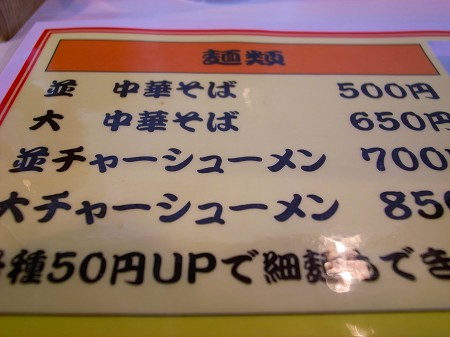 麺類
並 中華そば 500円
大 中華そば 650円
並チャーシューメン 700円
大チャーシューメン 850
種50円UPで細麺もでき